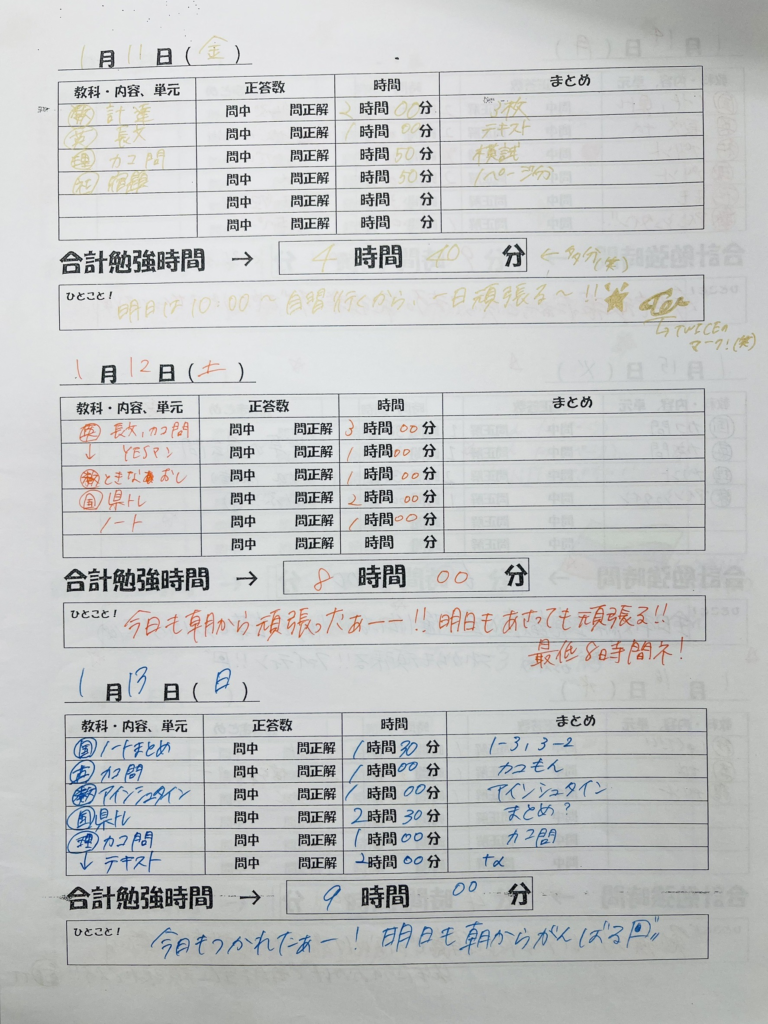 1月11日(金)
教科・内容、単元 正答数 時間 まとめ
㊕ 計 問中 問正解 2時間00分 3枚
英 長文 問中 問正解 1時間00分 テキスト
理 カコ問 問中 問正解 時間50分 模試
社 宿題 問中 問正解 時間50分 1ページ分
問中 問正解 時間 分
問中 問正解 時間 分
合計勉強時間 → 4時間40分 ←多分(笑)
ひとこと! 明日は10:00〜自習行くから、一日頑張る〜!!
↳TWICEのマーク!(笑)
1月12日(土)
教科・内容、単元 正答数 時間 まとめ
英 長文,カコ問 問中 問正解 3時間00分
↓ YESマン 問中 問正解 1時間00分
数 ときなおし 問中 問正解 1時間00分
国 県トレ 問中 問正解 2時間00分
ノート 問中 問正解 1時間00分
問中 問正解 時間 分
合計勉強時間 → 8時間00分
ひとこと! 今日も朝から頑張ったぁーー!!明日もあさっても頑張る!!
最低8時間ネ!
1月13日(日)
教科・内容、単元 正答数 時間 まとめ
国 ノートまとめ 問中 問正解 1時間30分 1-3, 3-2
カコ問 問中 問正解 1時間00分 カコもん
数 アインシュタイン 問中 問正解 1時間00分 アインシュタイン
国 県トレ 問中 問正解 2時間30分 まとめ?
理 カコ問 問中 問正解 1時間00分 カコ問
↓ テキスト 問中 問正解 2時間00分 +α
合計勉強時間 → 9時間00分
ひとこと! 今日もつかれたぁー! 明日も朝からがんばる